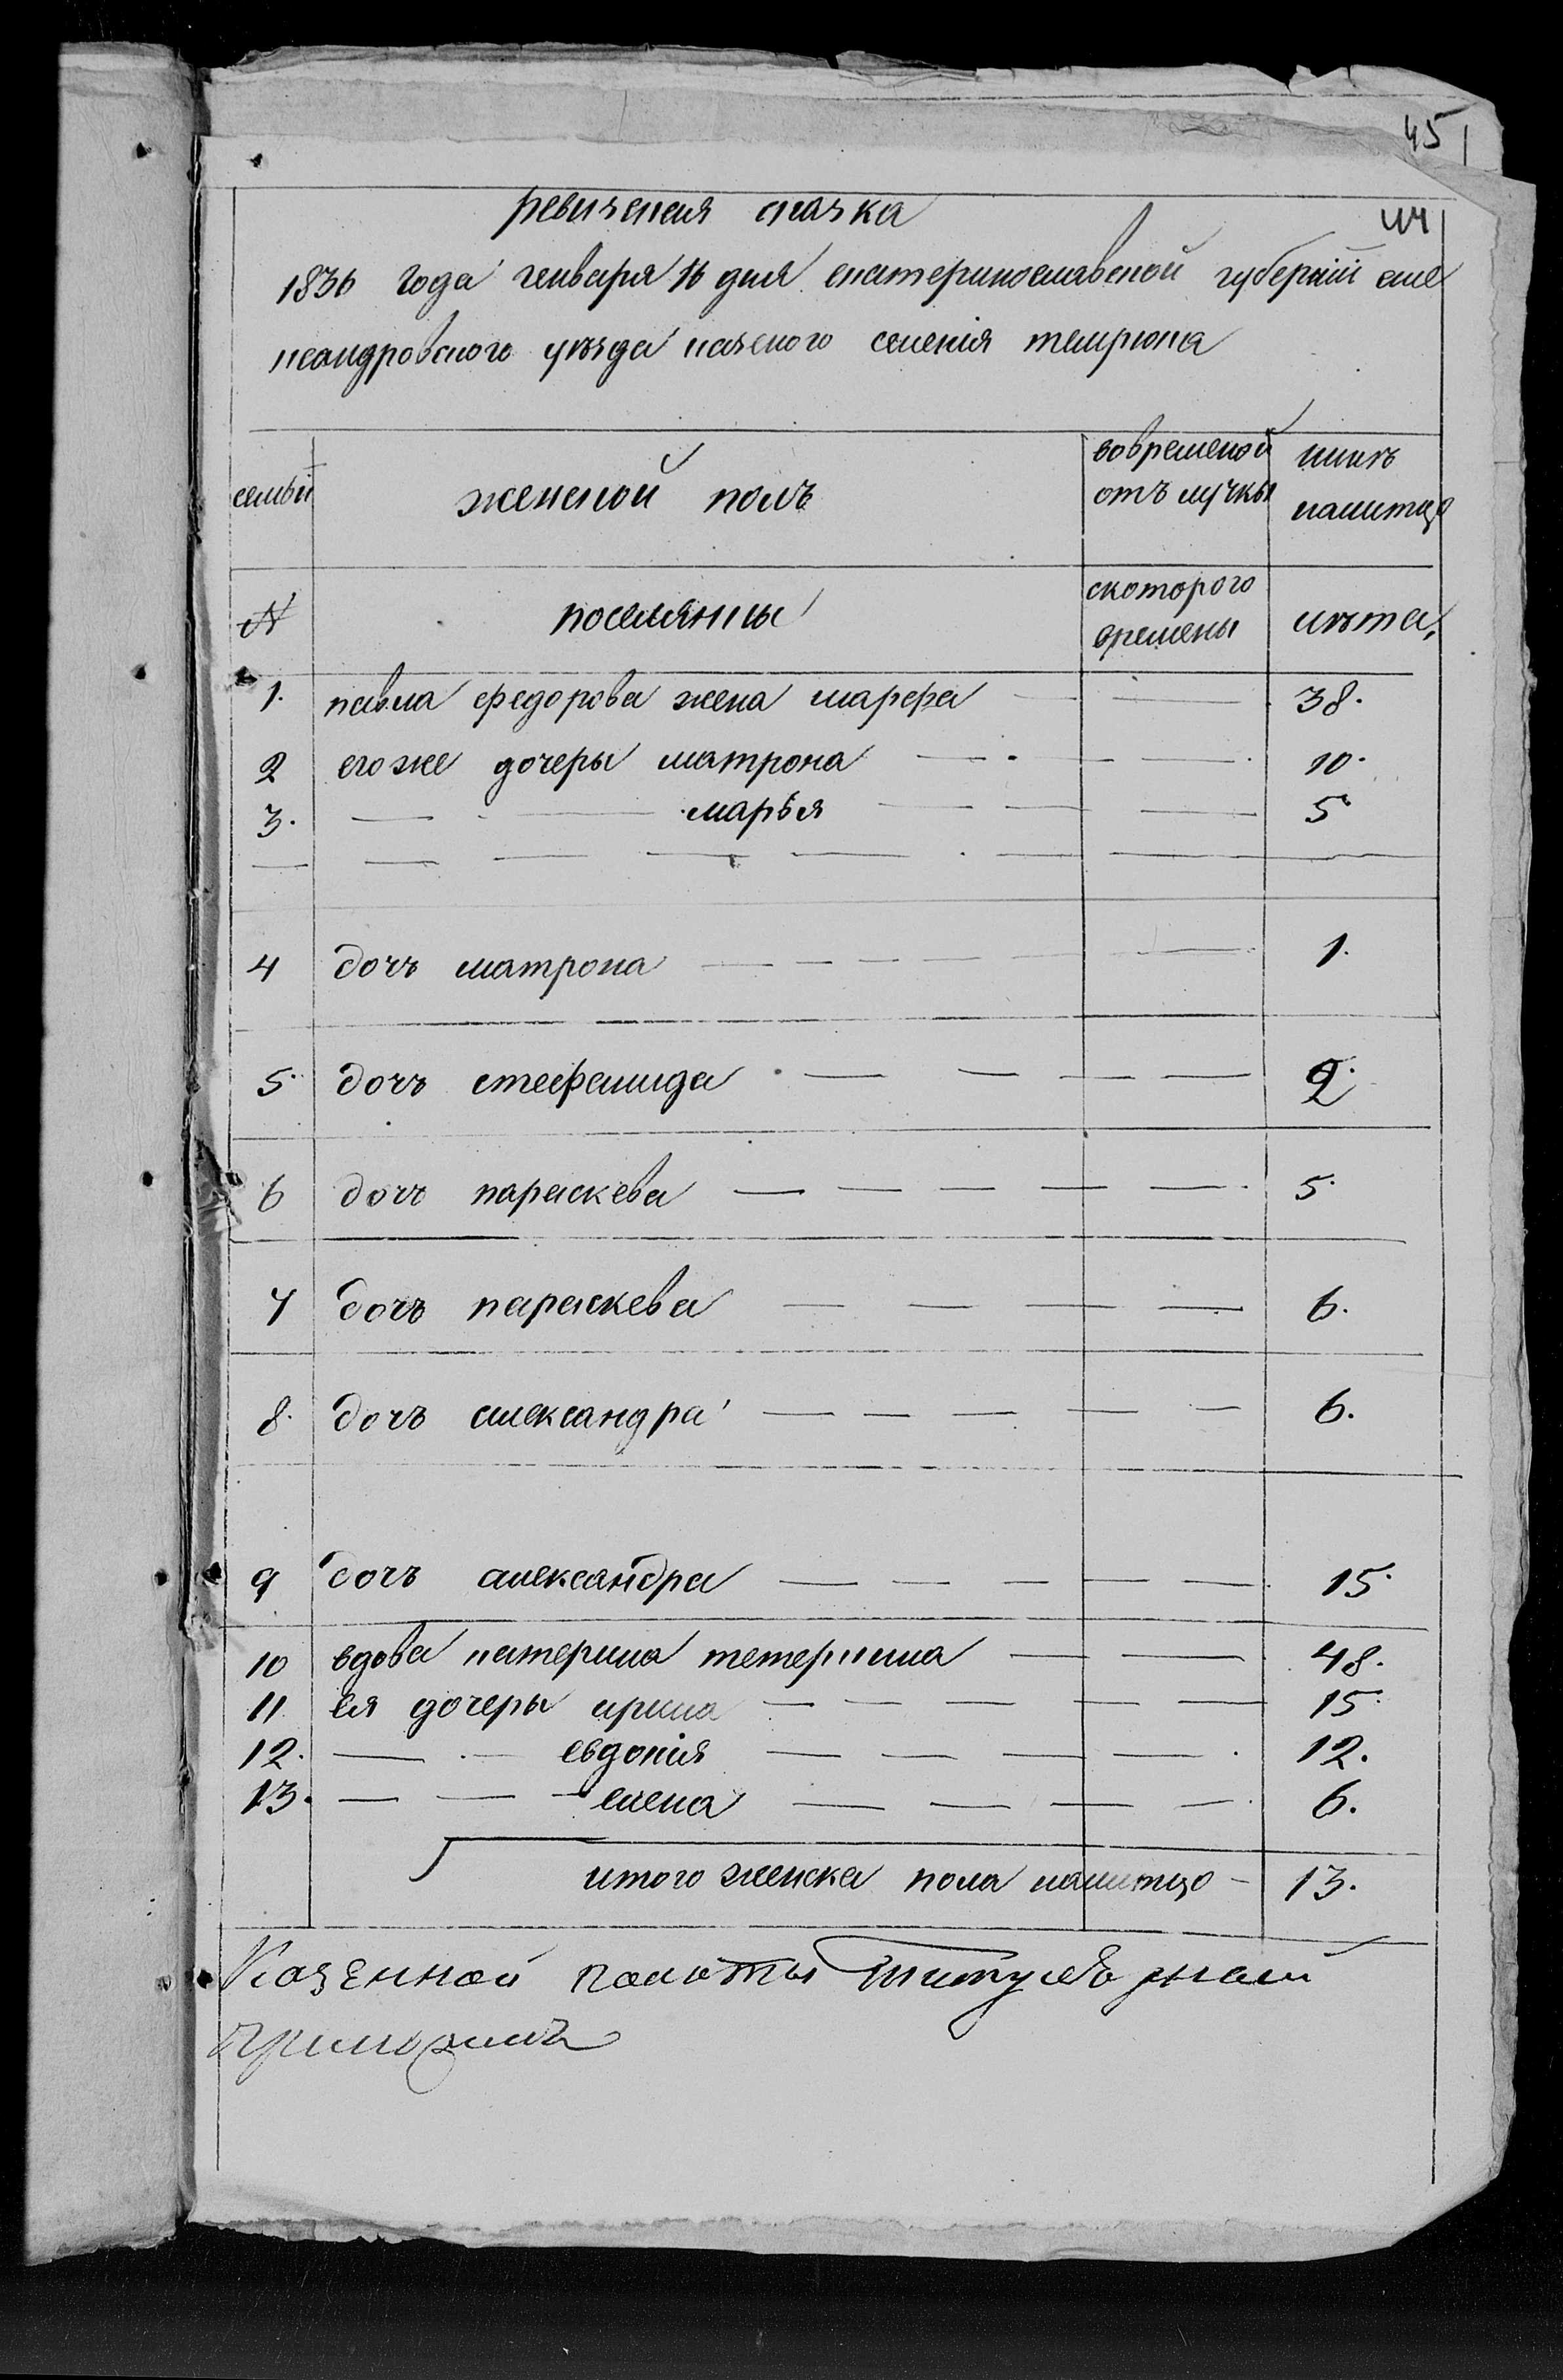 45
44
ревизская скаска
1836 года генваря 16 дня екатеринославской губернии але
ксандровского уезда казеного селения темрюка
семьи
женской полъ
вовременой отълучкы
ныне налицо
№
поселянкы
скоторого времены
лета,
1. павла федорова жена марфа — — 38.
2 егоже дочеры матрона — — — 10.
3. — — марья — — — 5
4 дочъ матрона — — — — — 1.
5 дочъ стефанида — — — — 2.
6 дочъ параскева — — — — — 5.
7 дочъ параскева — — — — 6.
8. дочъ александра — — — — — 6.
9 дочъ александра — — — — — 15.
10 вдова катерина — — 48.
11 ея дочеры ирина — — — — — 15.
12. — — евдокия — — — — 12.
13. — — елена — — — — 6.
итого женска пола налицо — 13.
Казенной палаты